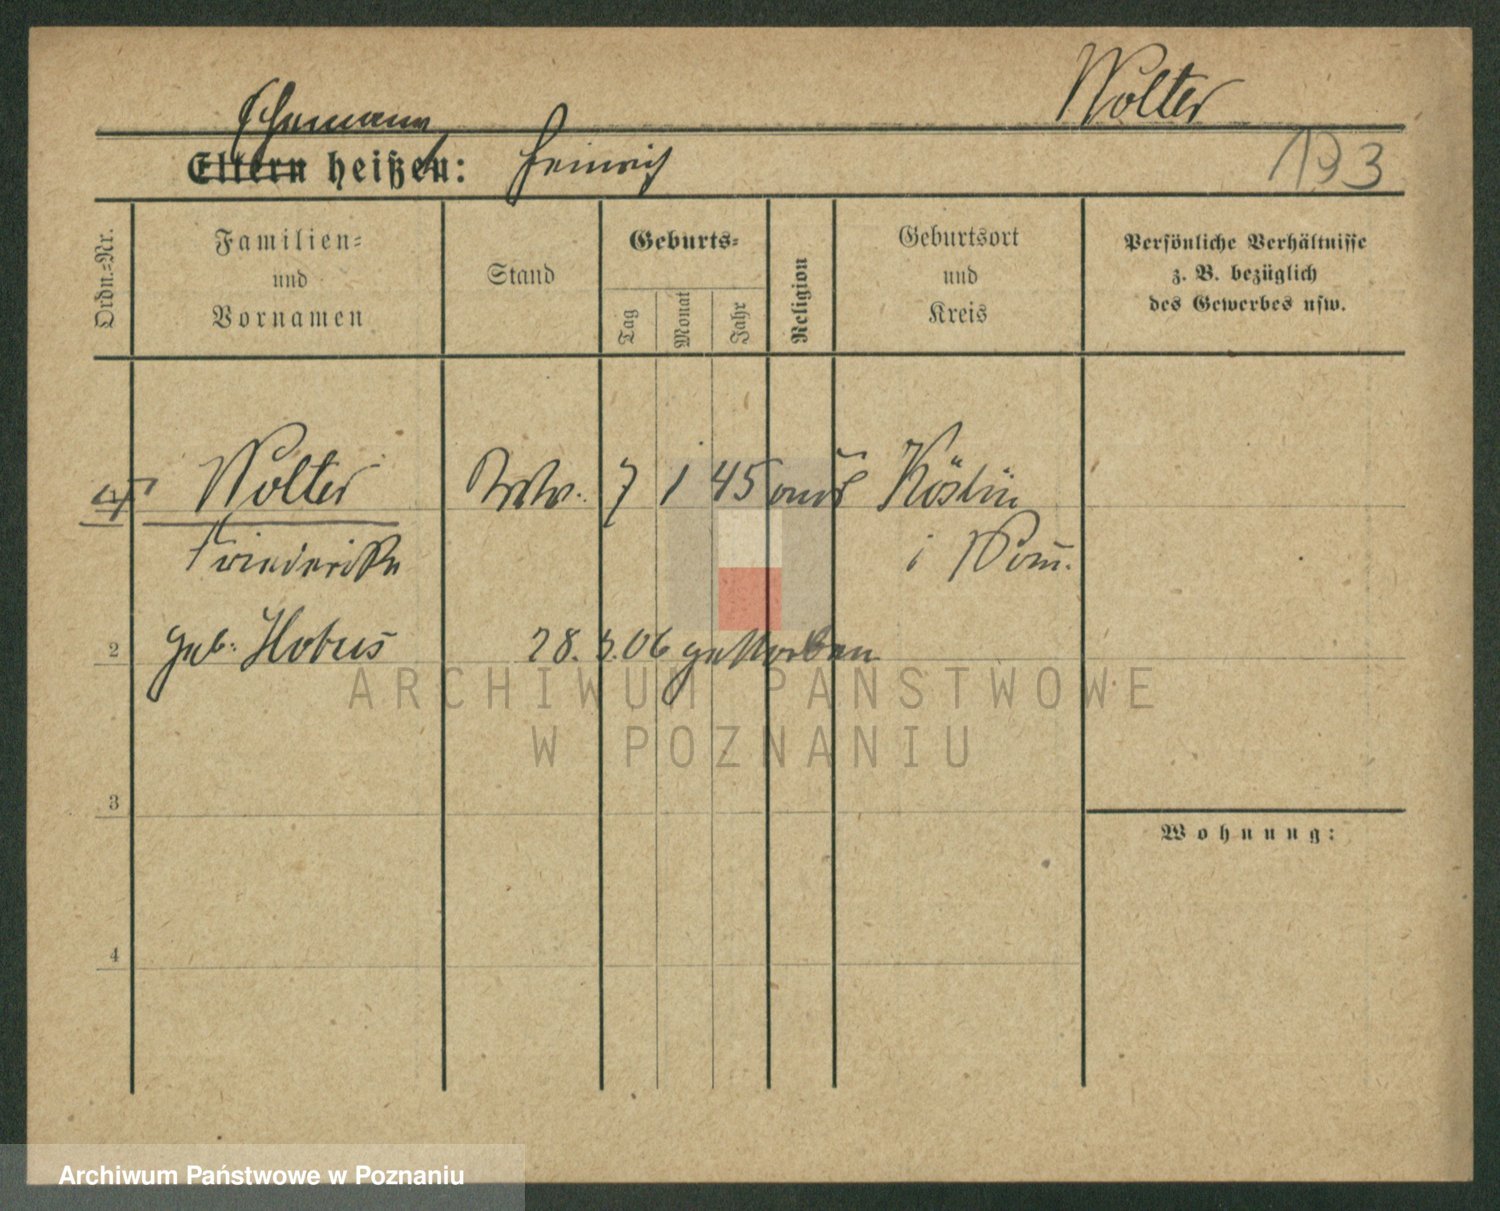 Wolter
Ehemann
Eltern heißen: Heinrich
193
Ordn.-Nr.
Familien-
und
Vornamen
Stand
Geburts-
Tag
Monat
Jahr
Religion
Geburtsort
und
Kreis
Persönliche Verhältnisse
z. B. bezüglich
des Gewerbes usw.
Wolter Wtw. 7 1 45 Köslin
Friederike i Pom.
2 geb. 28. 3. 06 gestorben
ARCHIWUM PAŃSTWOWE
W POZNANIU
3
Wohnung:
4
Archiwum Państwowe w Poznaniu